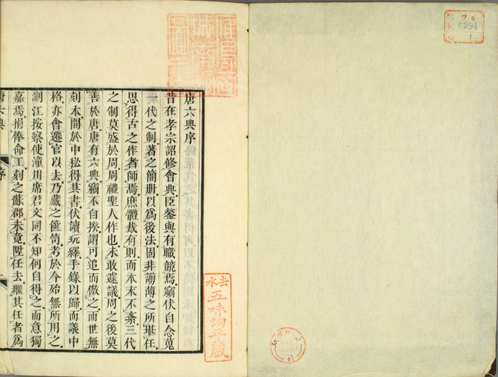 唐六典序
昔在孝宗詔修會典臣鏊與有職焉竊伏自念蒐
一代之制著之簡册以爲後法固非譾薄之所堪任
思得古之作者師焉庶體裁有則而本末不紊三代
之制莫盛於周周禮聖人作也未敢遽議周之後莫
善於唐唐有六典竊不自揆謂可追而倣之而世無
刻本閣於中秘得其書伏讀玩繹手錄以歸而議中
格亦會遷官以去乃藏之篋笥若於今殆無所用之
浙江按察使潼川席君文同不知何自得之而意獨
嘉焉捐俸命工刻之蘇郡未竟陞任去繼其任者爲
唐六典
序